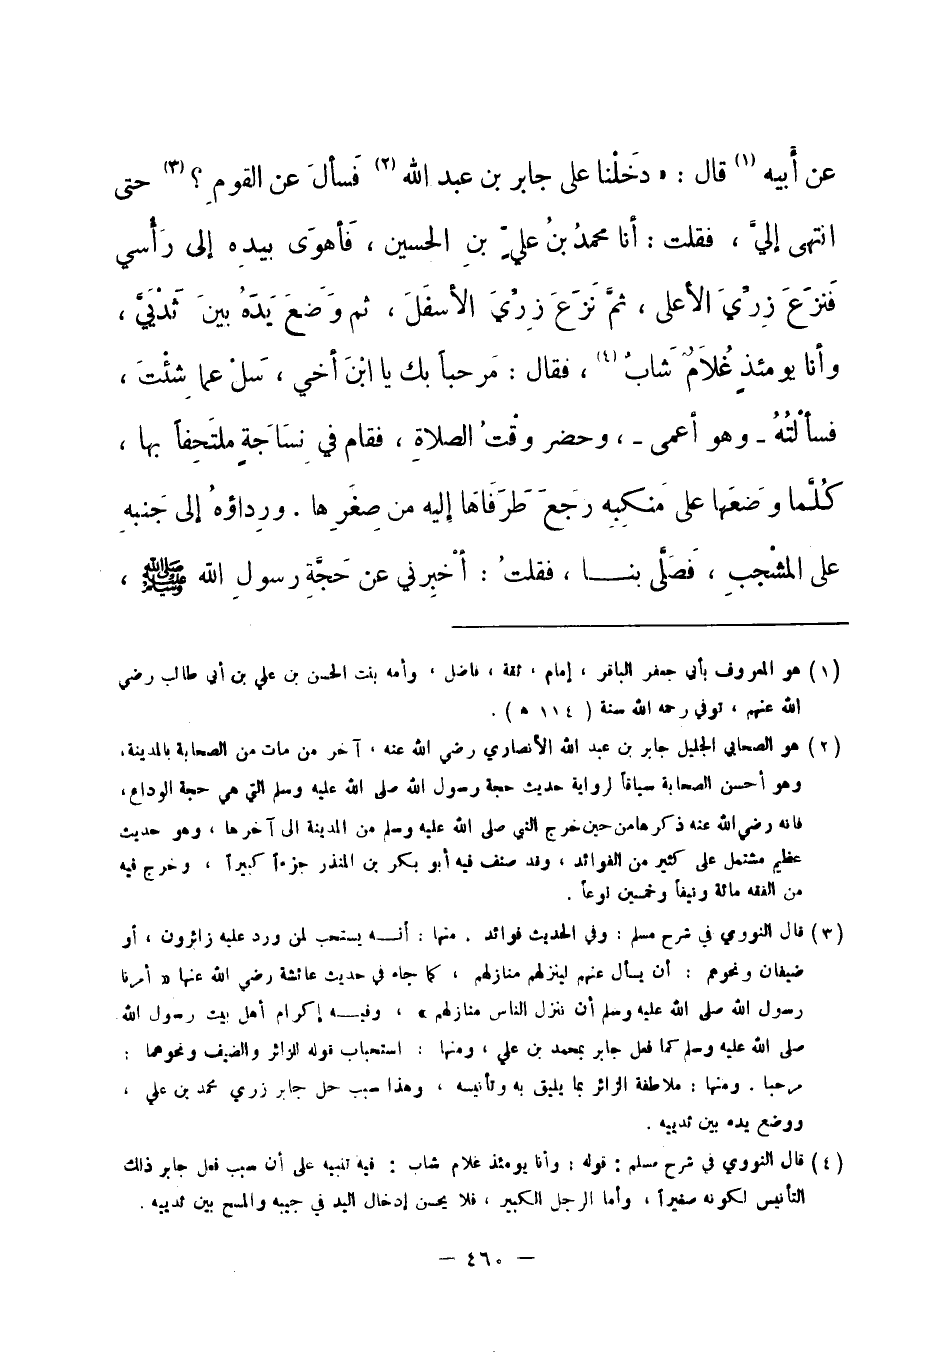 عن أَبيه (١) قال : « دخَلْنا على جابر بن عبد الله (٢) فَسألَ عن القومِ ؟ (٣) حتى
انتهى إليَّ ، فقلت : أنا محمدُ بنُ عليِّ بنِ الحسين ، فَأهوَى بيدهِ إلى رَأْسي
فَنزَعَ زِرِّيَ الأعلى ، ثمَّ نَزَعَ زِرِّيَ الأسفلَ ، ثم وَضعَ يَدَهُ بينَ ثَدْيَيَّ ،
وأنا يومئذٍ غُلَامٌ شَابٌ (٤) ، فقال : مَرحباً بك يا ابْنَ أخي ، سَلْ عما شِئْتَ ،
فسأَلْتُهُ ـ وهو أعمى ـ ، وحضر وقْتُ الصلاةِ ، فقام في نِسَاجَةٍ ملتَحِفاً بها ،
كُلَّما وَضعَها على مَنكِبِهِ رجَعَ طَرَفَاهَا إليه من صِغَرِها . ورِداؤهُ إلى جَنبهِ
على المشْجبِ ، فَصَلَّى بنــا ، فقلتُ : أَخبِرني عن حَجَّةِ رسولِ الله ﷺ ،
(١) هو المعروف بأبي جعفر الباقر ، إمام ، ثقة ، فاضل ، وأمه بنت الحسن بن علي بن أبي طالب رضي
الله عنهم ، توفي رحمه الله سنة ( ١١٤ ه ) .
(٢) هو الصحابي الجليل جابر بن عبد الله الأنصاري رضي الله عنه ، آخر من مات من الصحابة بالمدينة ،
وهو أحسن الصحابة سياقاً لرواية حديث حجة رسول الله صلى الله عليه وسلم التي هي حجة الوداع ،
فانه رضي الله عنه ذكرها من حين خرج النبي صلى الله عليه وسلم من المدينة الى آخرها ، وهو حديث
عظيم مشتمل على كثير من الفوائد ، وقد صنف فيه أبو بكر بن المنذر جزءاً كبيراً ، وخرج فيه
من الفقه مائة ونيفاً وخمسين نوعاً .
(٣) قال النووي في شرح مسلم : وفي الحديث فوائد . منها : أنــه يستحب لمن ورد عليه زائرون ، أو
ضيفان ونحوهم : أن يسأل عنهم لينزلهم منازلهم ، كما جاء في حديث عائشة رضي الله عنها « أمرنا
رسول الله صلى الله عليه وسلم أن ننزل الناس منازلهم » ، وفيــه إكرام أهل بيت رسول الله
صلى الله عليه وسلم كما فعل جابر بمحمد بن علي ، ومنها : استحباب قوله الزائر والضيف ونحوهما :
مرحبا . ومنها : ملاطفة الزائر بما يليق به وتأنيسه ، وهذا سبب حل جابر زري محمد بن علي ،
ووضع يده بين ثدييه .
(٤) قال النووي في شرح مسلم : قوله : وأنا يومئذ غلام شاب : فيه تنبيه على أن سبب فعل جابر ذلك
التأنيس لكونه صغيراً ، وأما الرجل الكبير ، فلا يحسن إدخال اليد في جيبه والمسح بين ثدييه .
— ٤٦٠ —